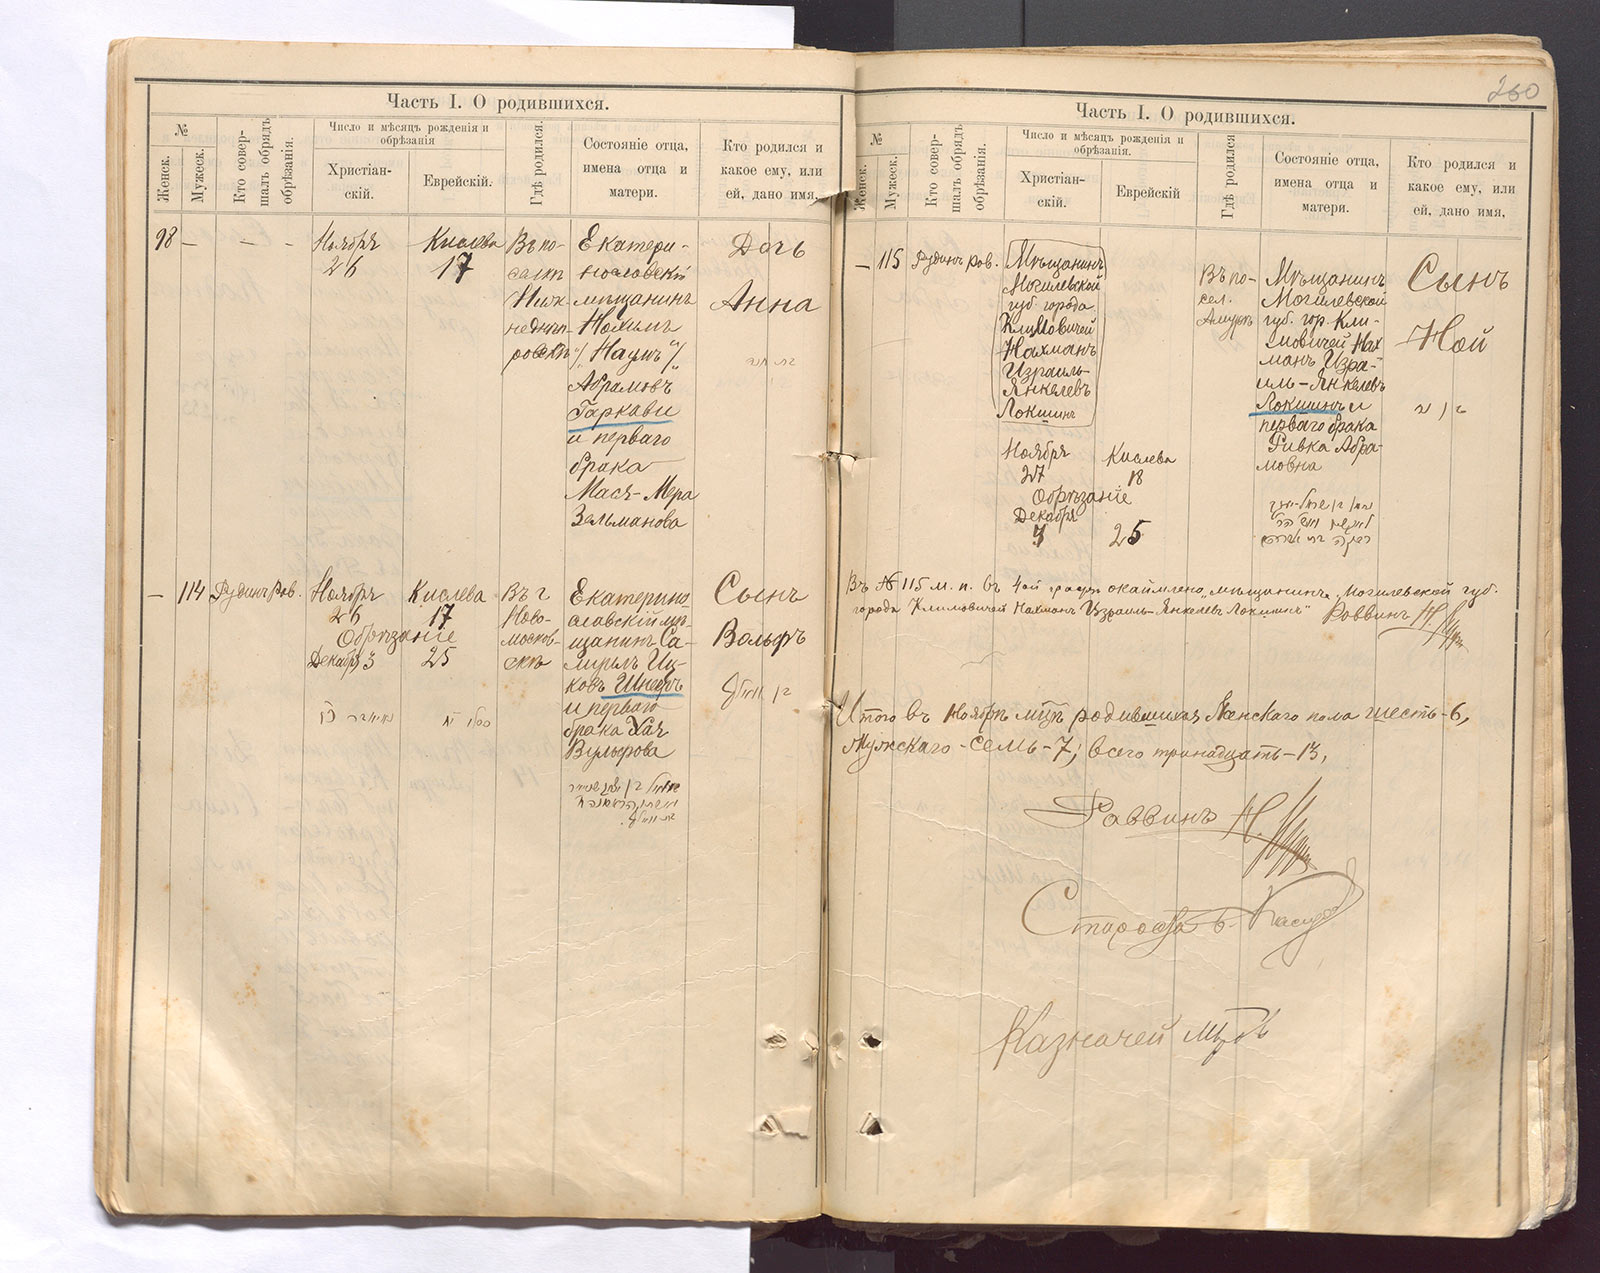 Часть I. О родившихся.
№
Женск.
Мужеск.
Кто совер-
шалъ обрядъ
обрѣзанія.
Число и мѣсяцъ рожденія и
обрѣзанія
Христіан-
скій.
Еврейскій.
Гдѣ родился.
Состояніе отца,
имена отца и
матери.
Кто родился и
какое ему, или
ей, дано имя.
98 — — -
Ноября
26
Кислева
17
Въ по-
Ниж-
неднѣп-
Екатери-
нославскій
мѣщанинъ
Нохимъ
/"Наумъ"/
Абрамовъ
Гаркави
и перваго
брака
Мася-Мера
Зельманова
Дочь
Анна
— 114
Рудинъ Рав.
Ноября
26
Обрѣзаніе
Декабря 3
Кислева
17
25
Въ г
Ново-
москов-
скѣ
Екатерино
славскій мѣ
щанинъ Са-
Иц-
ковъ Шнееръ
и перваго
брака Хая
Вульфова
Сынъ
Вольфъ
260
Часть I. О родившихся.
№
Женск.
Мужеск.
Кто совер-
шалъ обрядъ
обрѣзанія.
Число и мѣсяцъ рожденія и
обрѣзанія.
Христіан-
скій.
Еврейскій
Гдѣ родился
Состояніе отца,
имена отца и
матери.
Кто родился и
какое ему, или
ей, дано имя,
— 115
Рудинъ Рав.
Мѣщанинъ
Могилевской
губ. города
Климовичей
Нахманъ
Израиль-
Янкелевъ
Локшинъ
Ноября
27
Обрѣзаніе
Декабря
Кислева
18
25
Въ по-
сел.
Амурѣ
Мѣщанинъ
Могилевской
губ. гор. Кли-
мовичей Нах
манъ Изра-
иль-Янкелевъ
Локшинъ и
перваго брака
Ривка Абра-
мовна
Сынъ
Ной
Въ № 115 м. п. въ 4ой графѣ окаймлено „мѣщанинъ Могилевской губ.
города Климовичей Нахманъ Израиль-Янкелевъ Локшинъ" Раввинъ Н.
Итого въ Ноябрѣ мцѣ родившихся Женскаго пола шесть-6,
Мужскаго-семь-7; всего тринадцать-13,
Раввинъ Н.
Староста Б.
Казначей